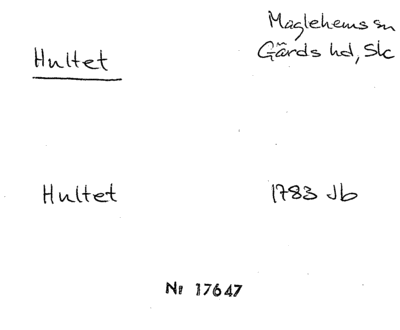 Hultet
Maglehems sn
Gärds hd, Skc
Hultet
1783 Jb
Nr 17647